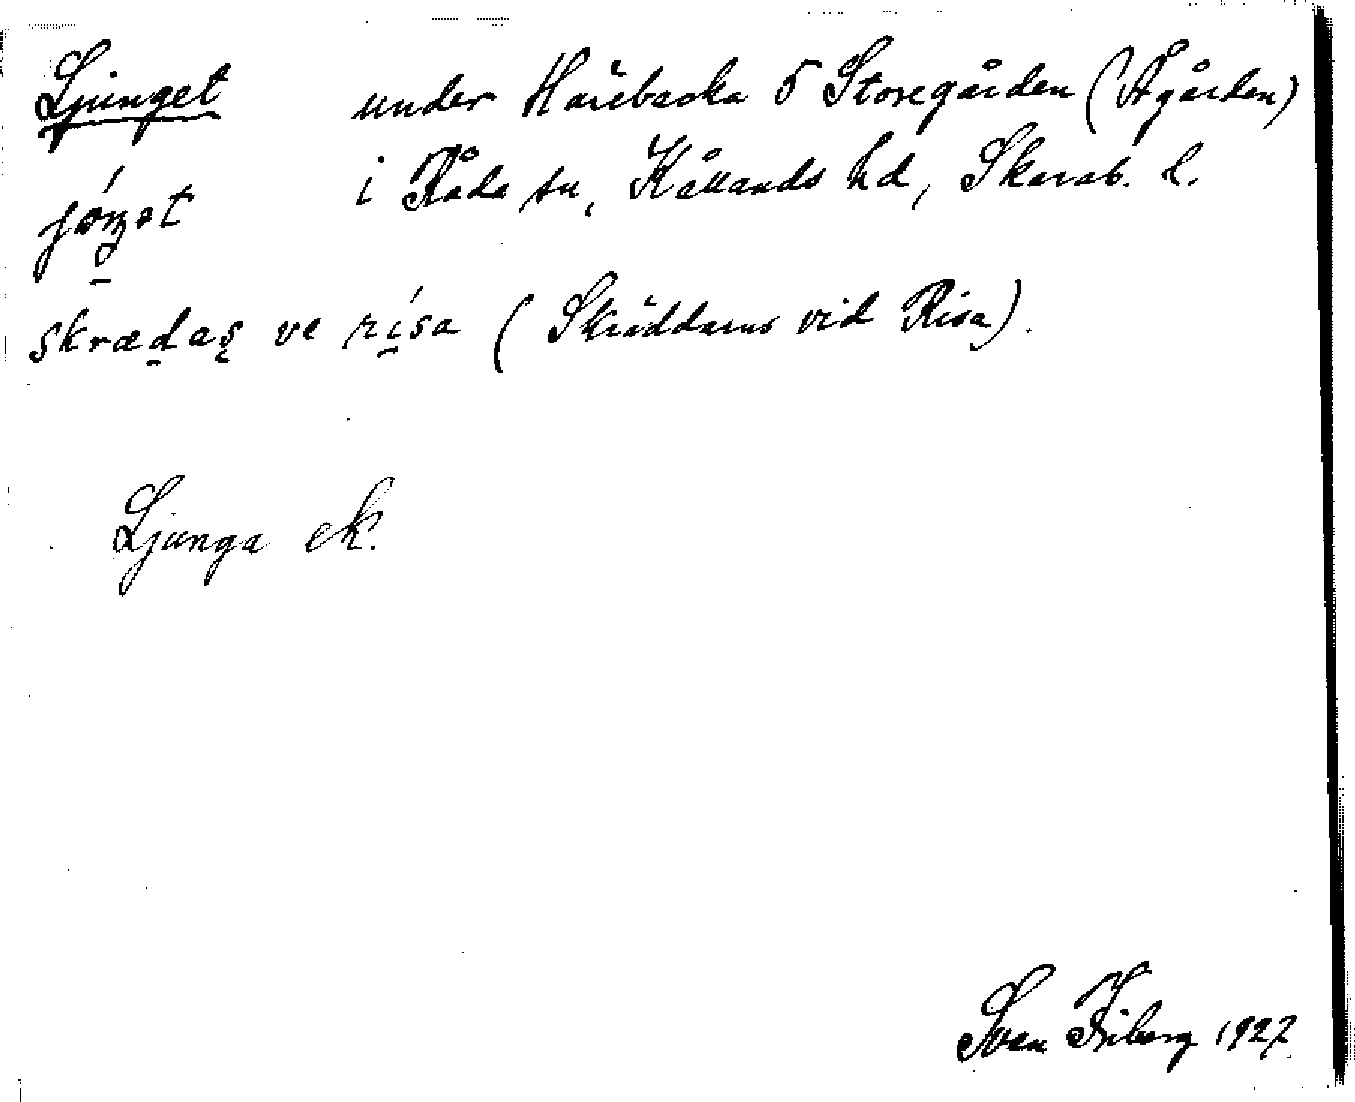 Ljunget under Härebacka 5 Storegården (Ågården)
i Råda sn, Kållands hd, Skarab. l.
skrædas ve risa (Skräddarns vid Risa).
Ljunga ek.
Sven Friberg 1927